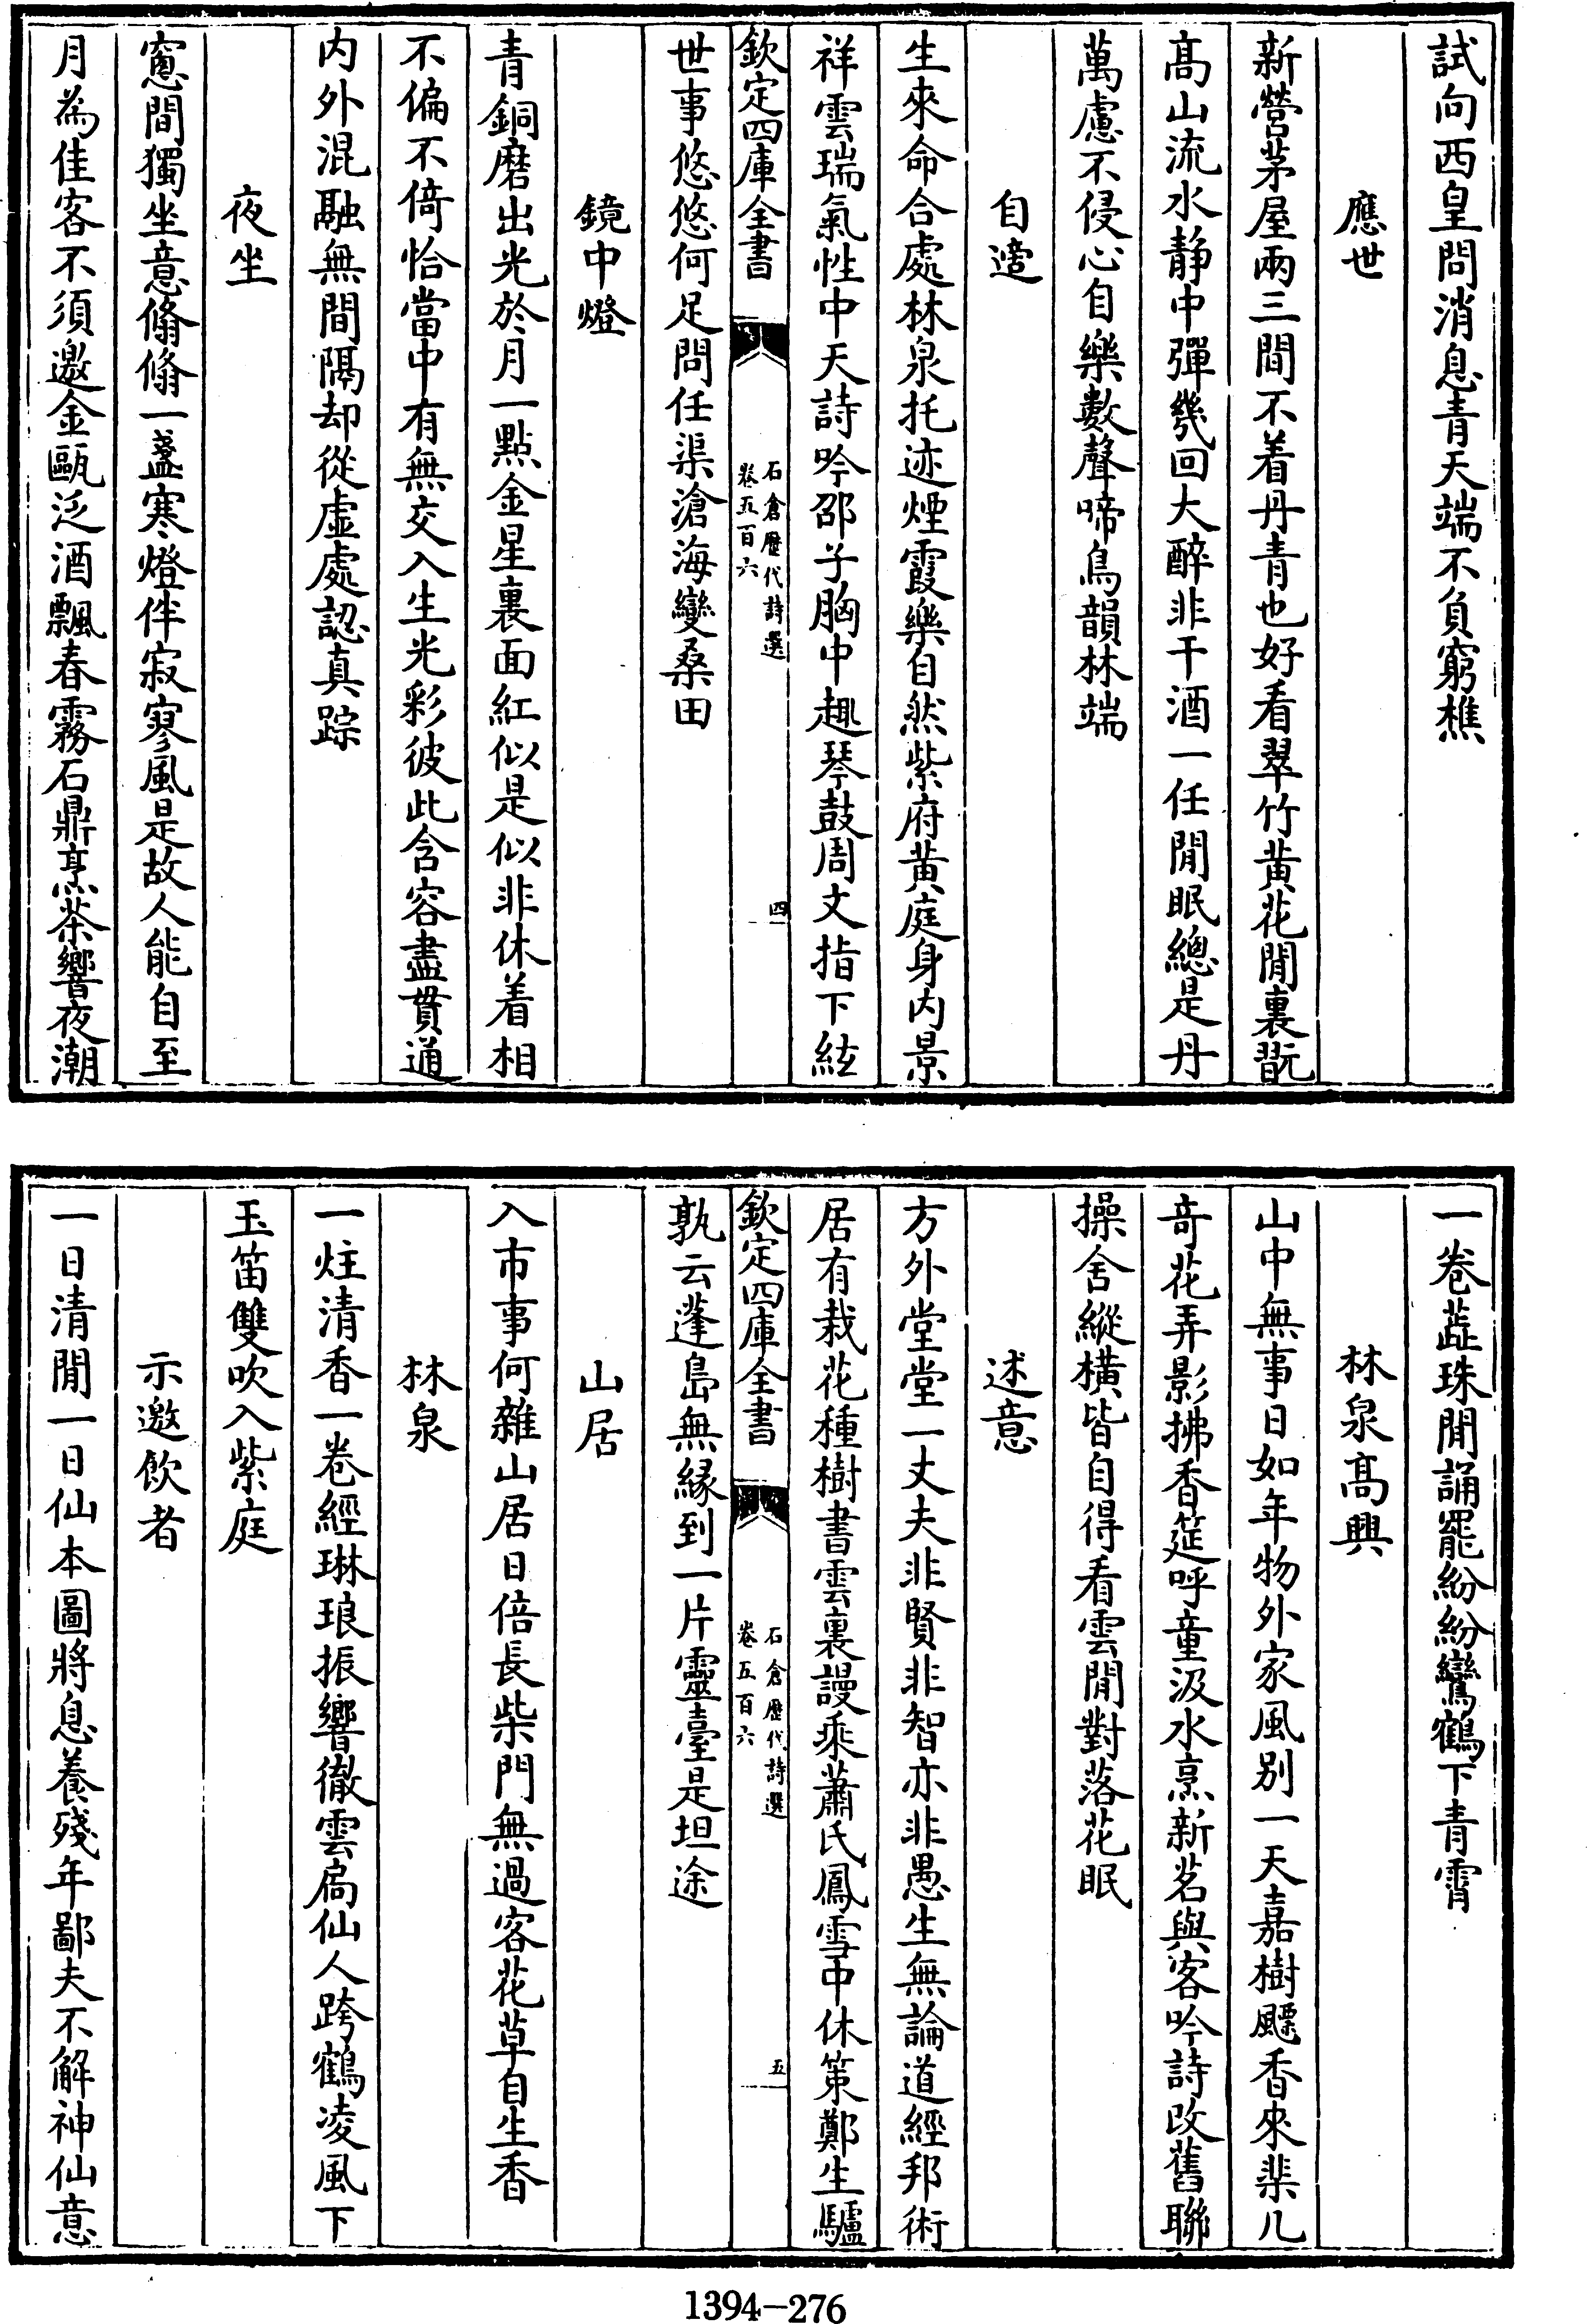 試向西皇問消息青天端不負窮樵
應世
新營茅屋兩三間不着丹青也好看翠竹黄花閒裏翫
髙山流水静中彈幾回大醉非干酒一任閒眠總是丹
萬慮不侵心自樂數聲啼鳥韻林端
自適
生來命合處林泉托迹煙霞樂自然紫府黄庭身内景
祥雲瑞氣性中天詩吟邵子胸中趣琴鼓周文指下絃
欽定四庫全書
石倉歷代詩選
卷五百六
四
世事悠悠何足問任渠滄海變桑田
鏡中燈
青銅磨出光於月一點金星裏面紅似是似非休着相
不偏不倚恰當中有無交入生光彩彼此含容盡貫通
内外混融無間隔却從虚處認真踪
夜坐
窻間獨坐意翛翛一盞寒燈伴寂寥風是故人能自至
月為佳客不須邀金甌泛酒飄春霧石鼎烹茶響夜潮
一卷蕋珠閒誦罷紛紛鸞鶴下青霄
林泉髙興
山中無事日如年物外家風别一天嘉樹飃香來棐几
竒花弄影拂香筵呼童汲水烹新茗與客吟詩改舊聯
操舍縱横皆自得看雲閒對落花眠
述意
方外堂堂一丈夫非賢非智亦非愚生無論道經邦術
居有栽花種樹書雲裏謾乘蕭氏鳳雪中休策鄭生驢
欽定四庫全書
石倉歷代詩選
卷五百六
五
孰云蓬島無縁到一片靈臺是坦途
山居
入市事何雜山居日倍長柴門無過客花草自生香
林泉
一炷清香一卷經琳琅振響徹雲扃仙人跨鶴凌風下
玉笛雙吹入紫庭
示邀飲者
一日清閒一日仙本圖將息養殘年鄙夫不解神仙意
1394-276